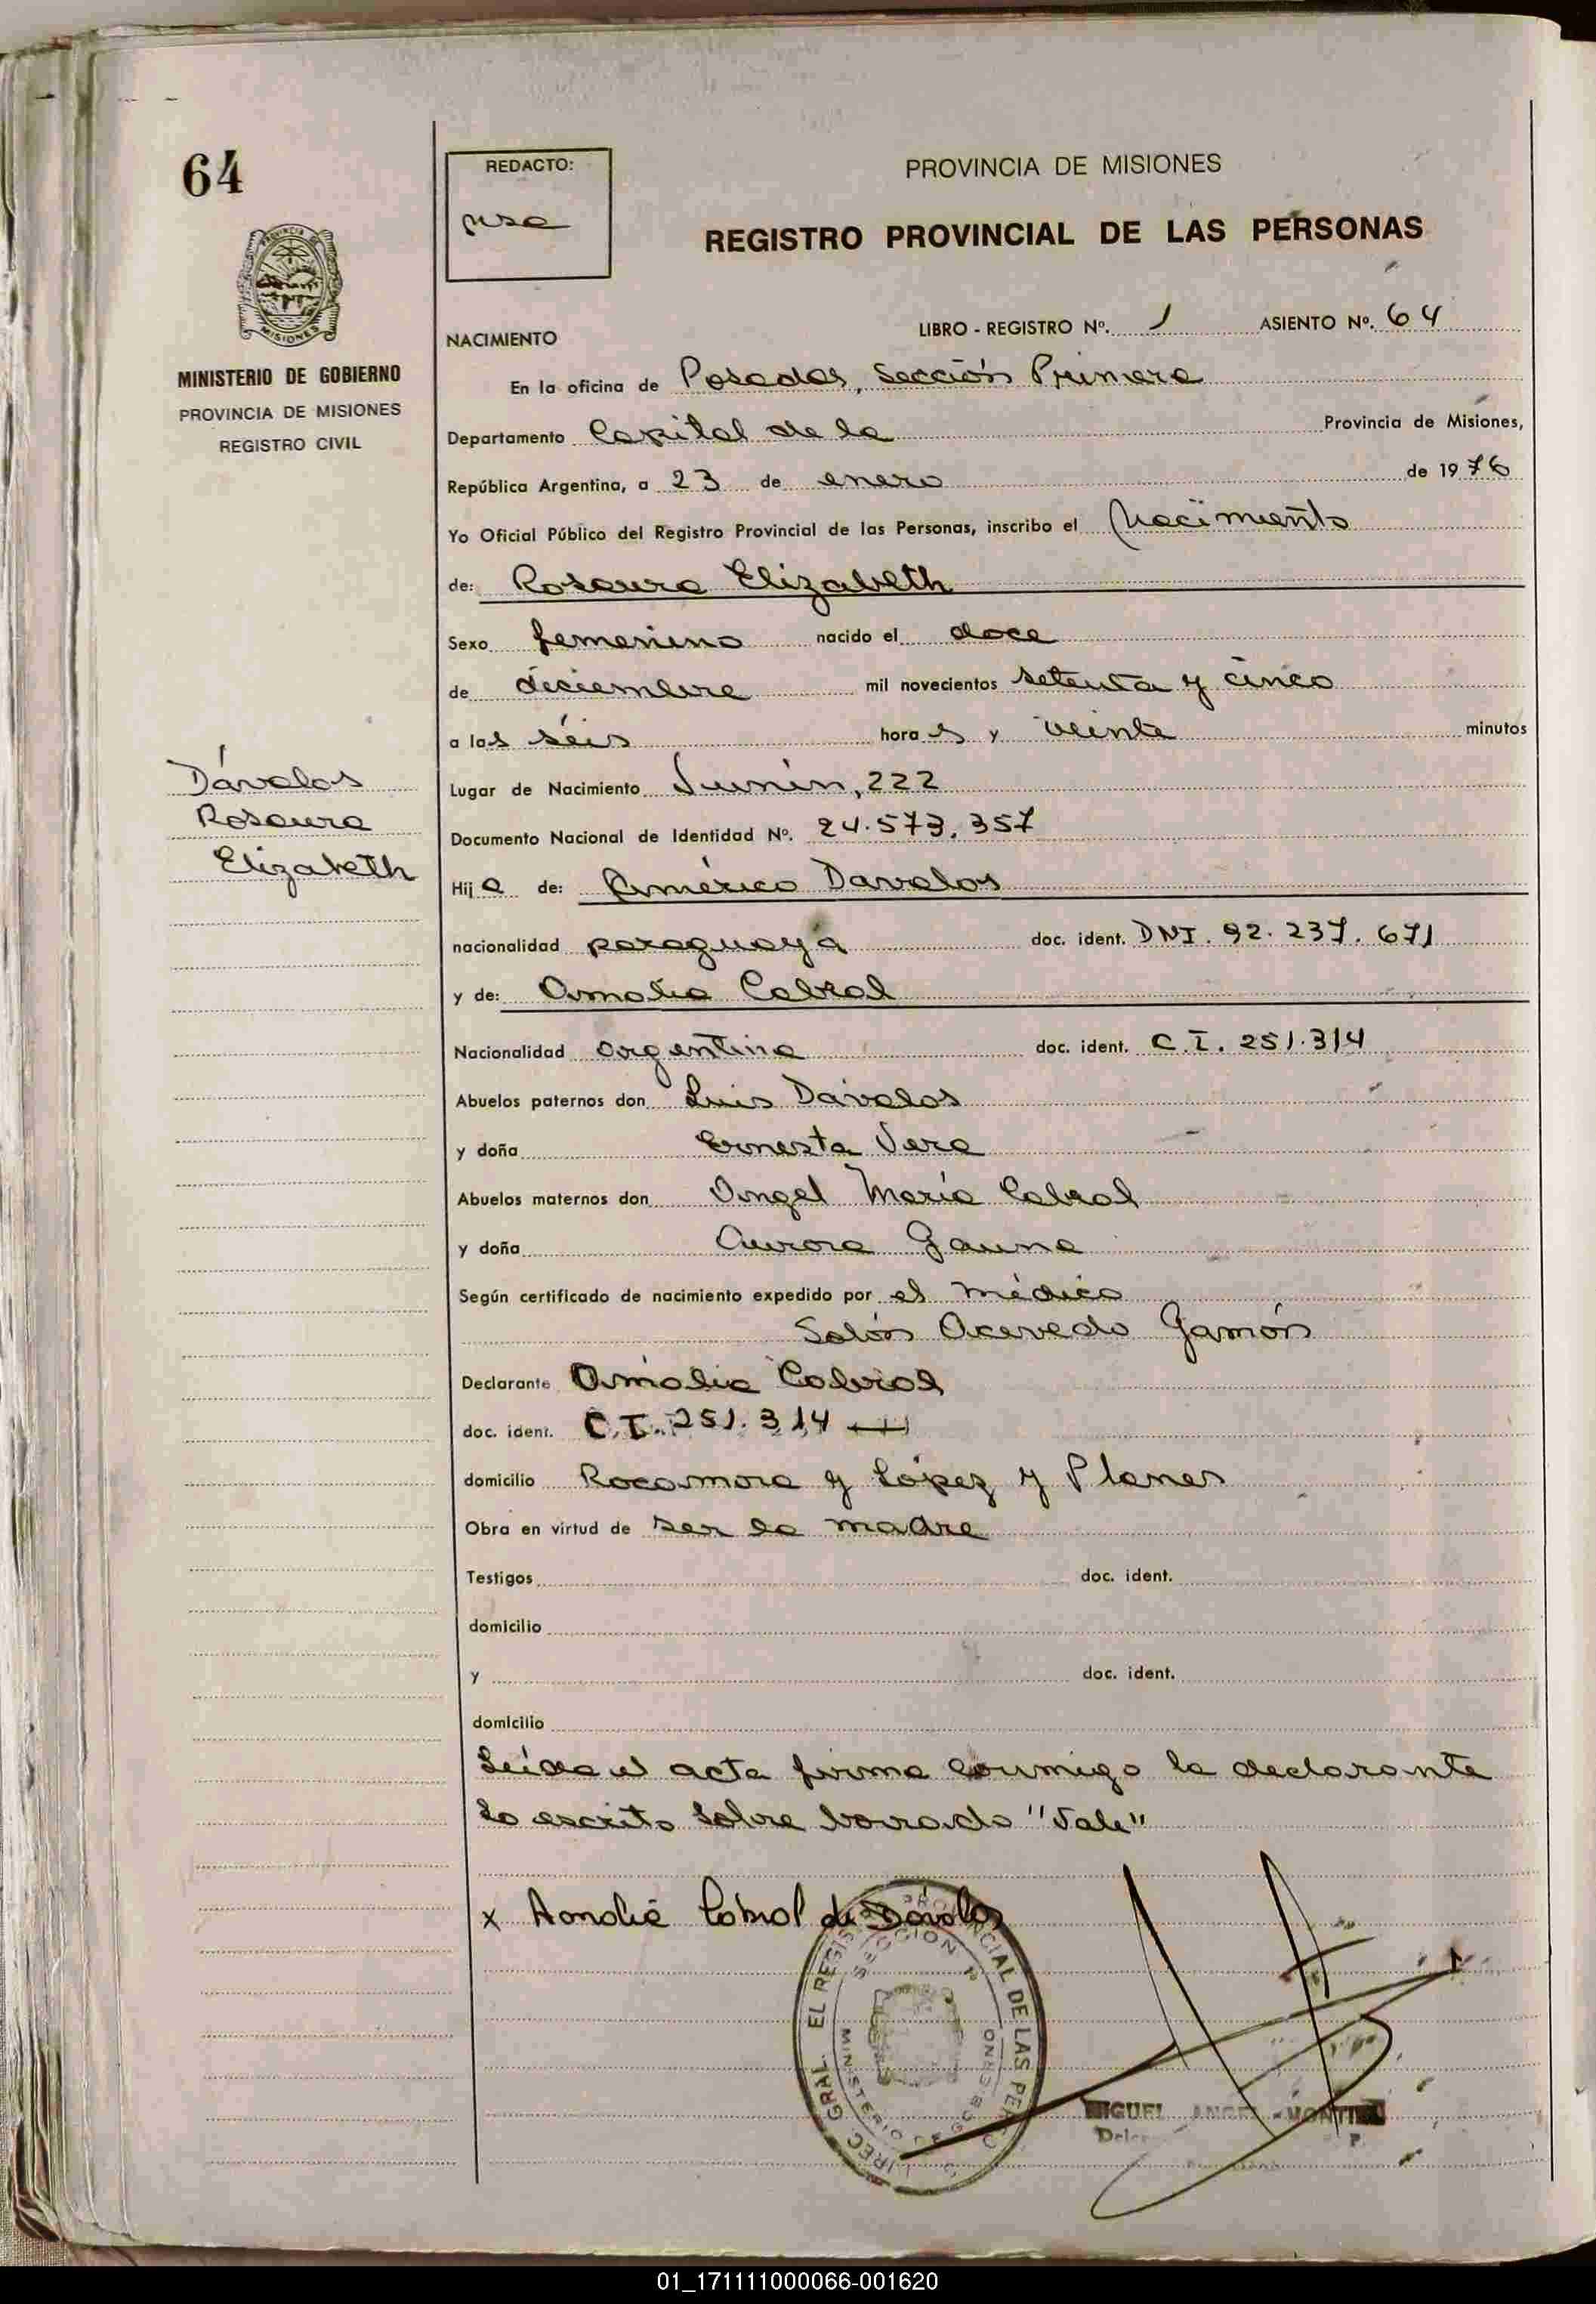 64
REDACTO:
PROVINCIA DE MISIONES
REGISTRO PROVINCIAL DE LAS PERSONAS
MINISTERIO DE GOBIERNO
PROVINCIA DE MISIONES
REGISTRO CIVIL
Dávalos
Rosaura
Elizabeth
NACIMIENTO LIBRO - REGISTRO Nº. 1 ASIENTO Nº. 64
En la oficina de Posadas, Sección Primera
Departamento Capital de la Provincia de Misiones,
República Argentina, a 23 de enero de 1976
Yo Oficial Público del Registro Provincial de las Personas, inscribo el Nacimiento
de: Rosaura Elizabeth
Sexo femenino nacido el doce
de diciembre mil novecientos setenta y cinco
a las séis horas y veinte minutos
Lugar de Nacimiento Junín, 222
Documento Nacional de Identidad Nº. 24.573.357
Hija de: Américo Davalos
nacionalidad paraguaya doc. ident. DNI. 92.237.671
y de: Amalia Cabral
Nacionalidad argentina doc. ident. C.I. 251.314
Abuelos paternos don Luis Dávalos
y doña Ernesta Vera
Abuelos maternos don Angel María Cabral
y doña Aurora Gauna
Según certificado de nacimiento expedido por el médico
Solón Acevedo Gamón
Declarante Amalia Cabral
doc. ident. C.I. 251.314
domicilio Rocamora y López y Planes
Obra en virtud de ser la madre
Testigos doc. ident.
domicilio
y doc. ident.
domicilio
Leída el acta firma conmigo la declarante
Lo escrito sobre borrado "Vale"
x Amalia Cabral de Dávalos
GRAL. EL REGIS PROVINCIAL DE LAS PER
SECCION 1ª
MINISTERIO DE GOBIERNO
MIGUEL ANGEL
01_171111000066-001620